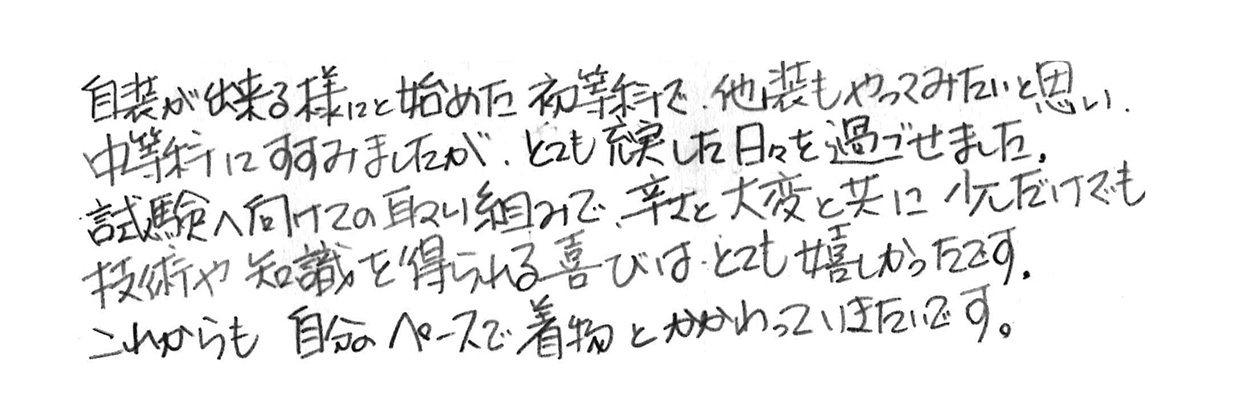 自装が出来る様にと始めた初等科で、他装もやってみたいと思い、
中等科にすすみましたが、とても充実した日々を過ごせました。
試験へ向けての取り組みで、辛さと大変と共に少しだけでも
技術や知識を得られる喜びは、とても嬉しかったです。
これからも 自分のペースで着物とかかわっていきたいです。